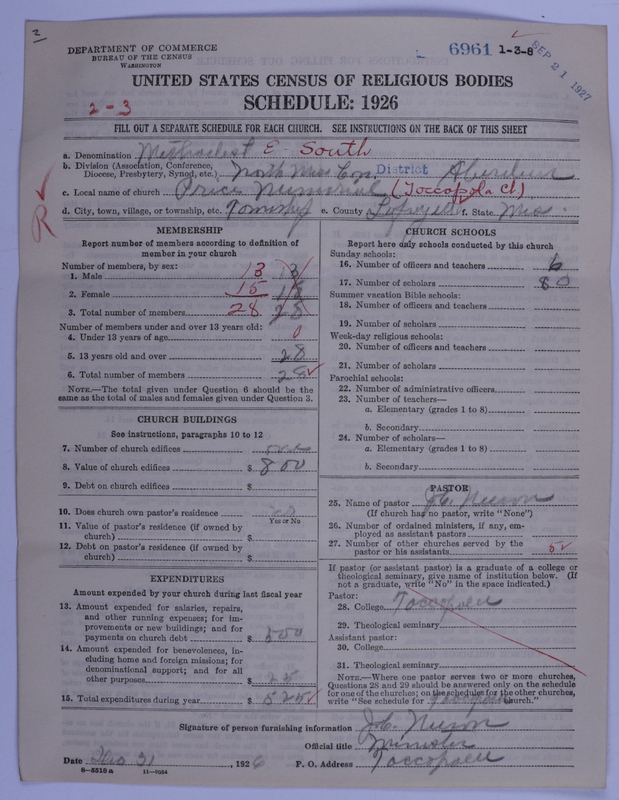 2
DEPARTMENT OF COMMERCE
BUREAU OF THE CENSUS
WASHINGTON
6961 1-3-8
SEP 21 1927
UNITED STATES CENSUS OF RELIGIOUS BODIES
SCHEDULE: 1926
2-3
FILL OUT A SEPARATE SCHEDULE FOR EACH CHURCH. SEE INSTRUCTIONS ON THE BACK OF THIS SHEET
a. Denomination Methodist E. South
b. Division (Association, Conference, Diocese, Presbytery, Synod, etc.) North Miss Con. District Aberdeen
c. Local name of church Price Memorial (Toccopola Ch)
R
d. City, town, village, or township, etc. Township e. County Lafayette f. State Miss
MEMBERSHIP
Report number of members according to definition of
member in your church
Number of members, by sex:
1. Male 13 13
2. Female 15 15
3. Total number of members 28 28
Number of members under and over 13 years old:
4. Under 13 years of age 0
5. 13 years old and over 28
6. Total number of members 28
NOTE.—The total given under Question 6 should be the
same as the total of males and females given under Question 3.
CHURCH BUILDINGS
See instructions, paragraphs 10 to 12
7. Number of church edifices
8. Value of church edifices $ 800
9. Debt on church edifices $
10. Does church own pastor's residence
Yes or No
11. Value of pastor's residence (if owned by
church) $
12. Debt on pastor's residence (if owned by
church) $
EXPENDITURES
Amount expended by your church during last fiscal year
13. Amount expended for salaries, repairs,
and other running expenses; for im-
provements or new buildings; and for
payments on church debt $ 500
14. Amount expended for benevolences, in-
cluding home and foreign missions; for
denominational support; and for all
other purposes $ 25
15. Total expenditures during year $ 525
CHURCH SCHOOLS
Report here only schools conducted by this church
Sunday schools:
16. Number of officers and teachers 6
17. Number of scholars 80
Summer vacation Bible schools:
18. Number of officers and teachers
19. Number of scholars
Week-day religious schools:
20. Number of officers and teachers
21. Number of scholars
Parochial schools:
22. Number of administrative officers
23. Number of teachers—
a. Elementary (grades 1 to 8)
b. Secondary
24. Number of scholars—
a. Elementary (grades 1 to 8)
b. Secondary
PASTOR
25. Name of pastor
(If church has no pastor, write "None")
26. Number of ordained ministers, if any, em-
ployed as assistant pastors
27. Number of other churches served by the
pastor or his assistants 5
If pastor (or assistant pastor) is a graduate of a college or
theological seminary, give name of institution below. (If
not a graduate, write "No" in the space indicated.)
Pastor:
28. College Toccopola
29. Theological seminary
Assistant pastor:
30. College
31. Theological seminary
NOTE.—Where one pastor serves two or more churches,
Questions 28 and 29 should be answered only on the schedule
for one of the churches; on the schedules for the other churches,
write "See schedule for Toccopola church."
Signature of person furnishing information
Official title Minister
Date 31, 1926 P. O. Address Toccopola
8-5518 a 11-9034